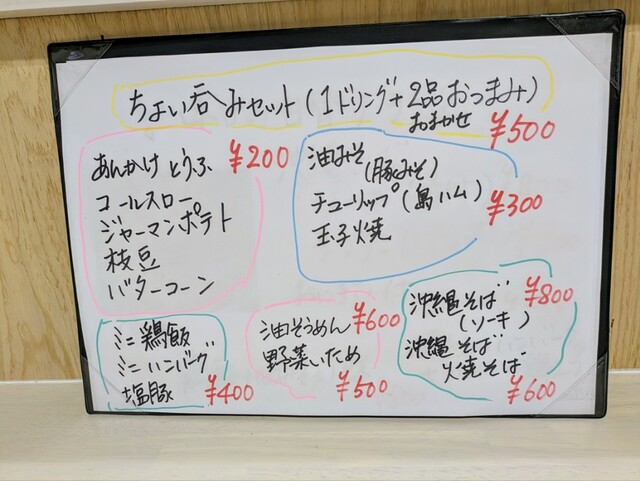 ちょい呑みセット(1ドリンク+2品おつまみ)
おまかせ ¥500
あんかけとうふ ¥200
コールスロー
ジャーマンポテト
枝豆
バターコーン
油みそ
(豚みそ)
チューリップ(島ハム) ¥300
玉子焼
ミニ鶏飯
ミニハンバーグ
塩豚 ¥400
油そうめん ¥600
野菜いため
¥500
沖縄そば ¥800
(ソーキ)
沖縄そば
焼そば
¥600